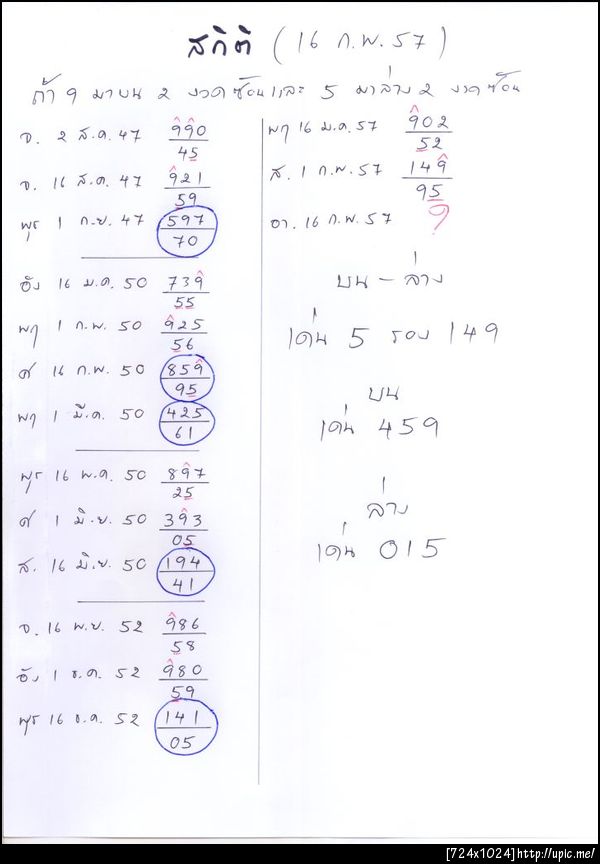 สถิติ (16 ก.พ. 57)
ถ้า 9 มาบน 2 งวดซ้อนและ 5 มาล่าง 2 งวดซ้อน
จ. 2 ส.ค. 47 990
45
จ. 16 ส.ค. 47 921
59
พุธ 1 ก.ย. 47 597
70
อัง 16 ม.ค. 50 739
55
พฤ 1 ก.พ. 50 925
56
ศ 16 ก.พ. 50 859
95
พฤ 1 มี.ค. 50 425
61
พุธ 16 พ.ค. 50 897
25
ศ 1 มิ.ย. 50 393
05
ส. 16 มิ.ย. 50 194
41
จ. 16 พ.ย. 52 986
58
อัง 1 ธ.ค. 52 980
59
พุธ 16 ธ.ค. 52 141
05
พฤ 16 ม.ค. 57 902
52
ส. 1 ก.พ. 57 149
95
อา. 16 ก.พ. 57 ?
บน - ล่าง
เด่น 5 รอง 149
บน
เด่น 459
ล่าง
เด่น 015
[724x1024]http://upic.me/